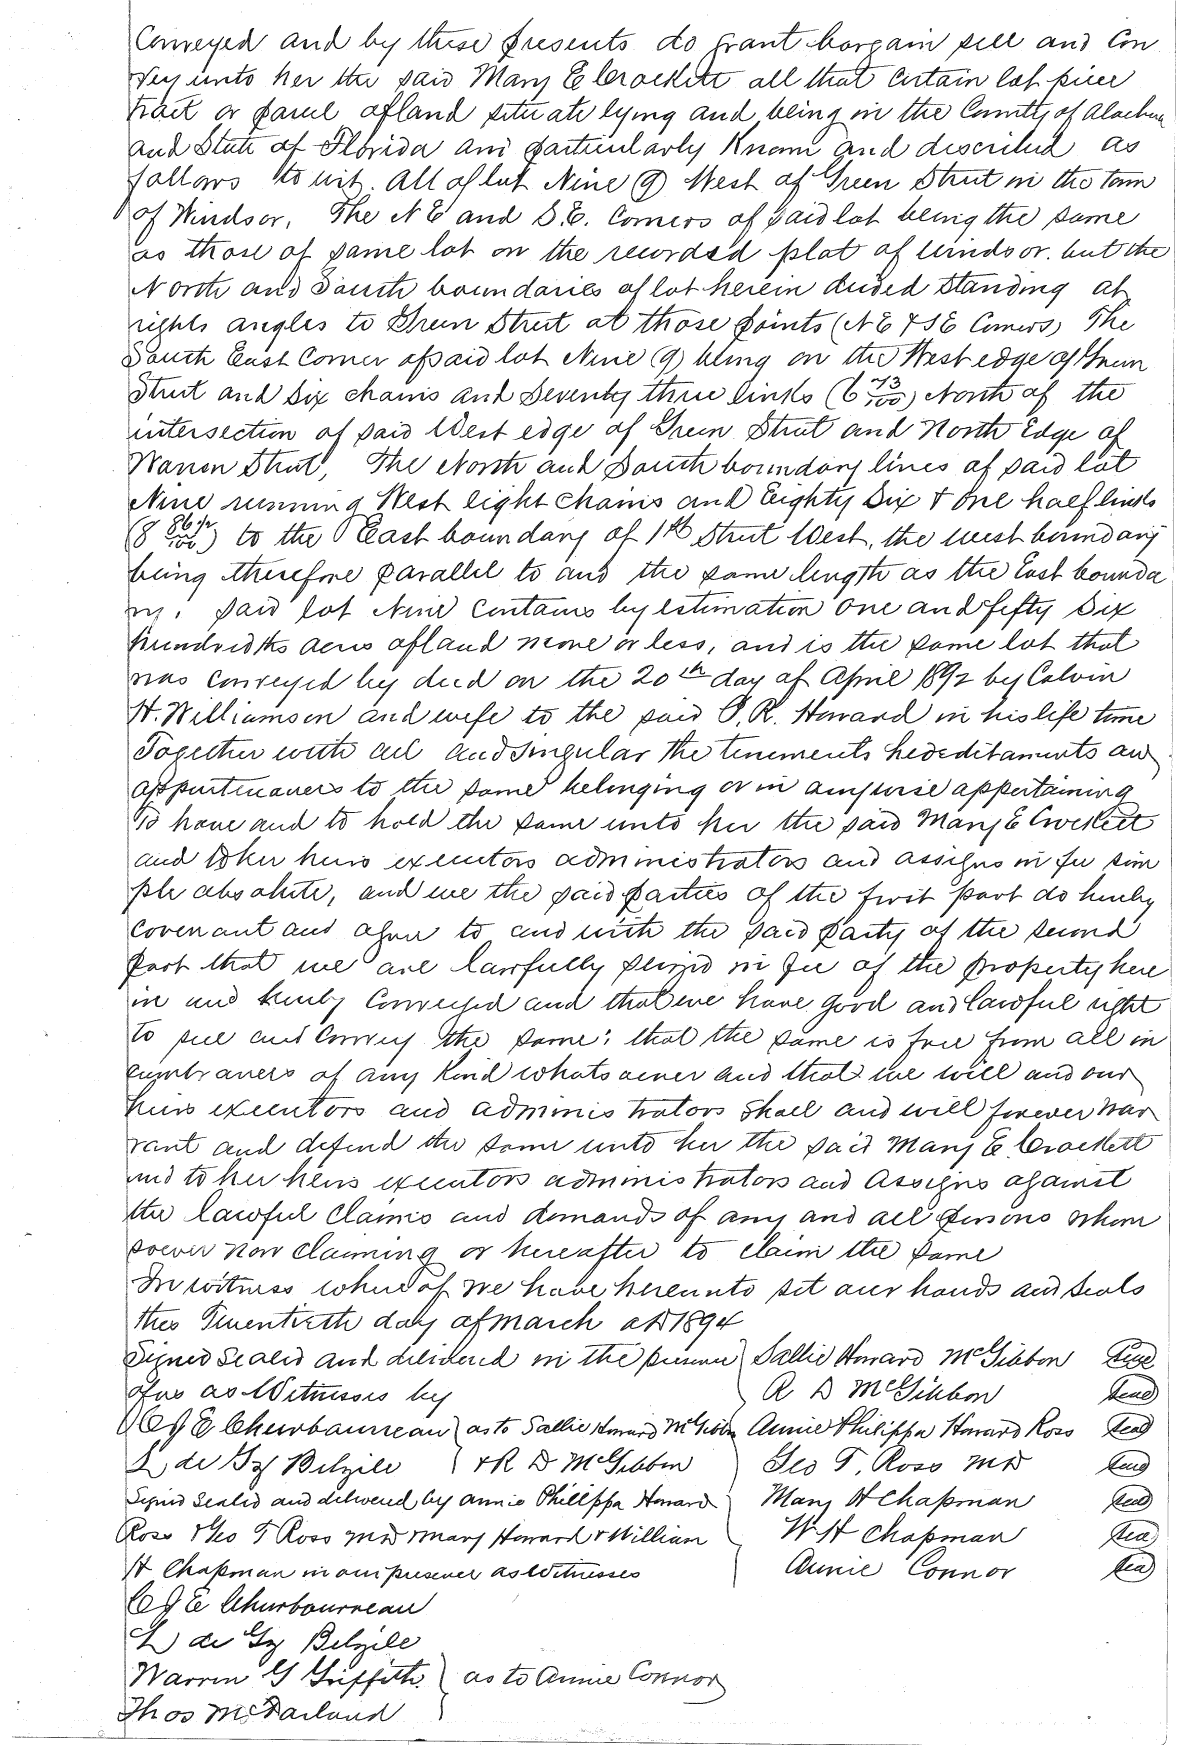 Conveyed and by these presents do grant bargain sell and Con
vey unto her the said Mary E Crockett all that certain lot piece
tract or parcel of land situate lying and being in the County of Alachua
and State of Florida and particularly Known and described as
follows to wit. All of lot Nine (9) West of Green Street in the town
of Windsor. The N E and S.E. Corners of said lot being the same
as those of same lot on the recorded plat of Windsor. but the
North and South boundaries of lot herein deeded standing at
rights angles to Green Street at those points (N E & S E Corners) The
South East Corner of said lot Nine (9) being on the West edge of Green
Street and Six chains and Seventy three links (6 73/100) North of the
intersection of said West edge of Green Street and North Edge of
Warren Street, The North and South boundary lines of said lot
Nine running West eight chains and Eighty Six & one half links
(8 86½/100) to the East boundary of 1st Street West, the west boundary
being therefore parallel to and the same length as the East bounda
ry. said lot Nine Contains by estimation One and fifty Six
hundredths acres of land more or less, and is the same lot that
was conveyed by deed on the 20th day of April 1892 by Calvin
H. Williamson and wife to the said P. R. Howard in his life time
Together with all and singular the tenements hereditaments and
appurtenances to the same belonging or in anywise appertaining
To have and to hold the same unto her the said Mary E Crockett
and to her heirs executors administrators and assigns in fee sim
ple absolute, and we the said parties of the first part do hereby
covenant and agree to and with the said party of the second
part that we are lawfully seized in fee of the property here
in and hereby Conveyed and that we have good and lawful right
to sell and convey the same; that the same is free from all in
cumbrances of any Kind whatsoever and that we will and our
heirs executors and administrators shall and will forever war
rant and defend the same unto her the said Mary E Crockett
and to her heirs executors administrators and Assigns against
the lawful claims and demands of any and all persons whom
soever now claiming or hereafter to claim the same
In witness whereof we have hereunto set our hands and seals
this Twentieth day of March AD 1894
Signed Sealed and delivered in the presence Sallie Howard McGibbon Seal
of us as Witnesses by R D McGibbon Seal
C J E Charbonneau as to Sallie Howard McGibbon Annie Philippa Howard Ross Seal
L de Gy Belzile & R D McGibbon Geo T. Ross MD Seal
Signed Sealed and delivered by Annie Philippa Howard Mary H Chapman Seal
Ross & Geo T Ross MD Mary Howard & William W H Chapman Seal
H Chapman in our presence as Witnesses Annie Connor Seal
C J E Charbonneau
L de Gy Belzile
Warren G Griffith as to Annie Connor
Thos McFarland